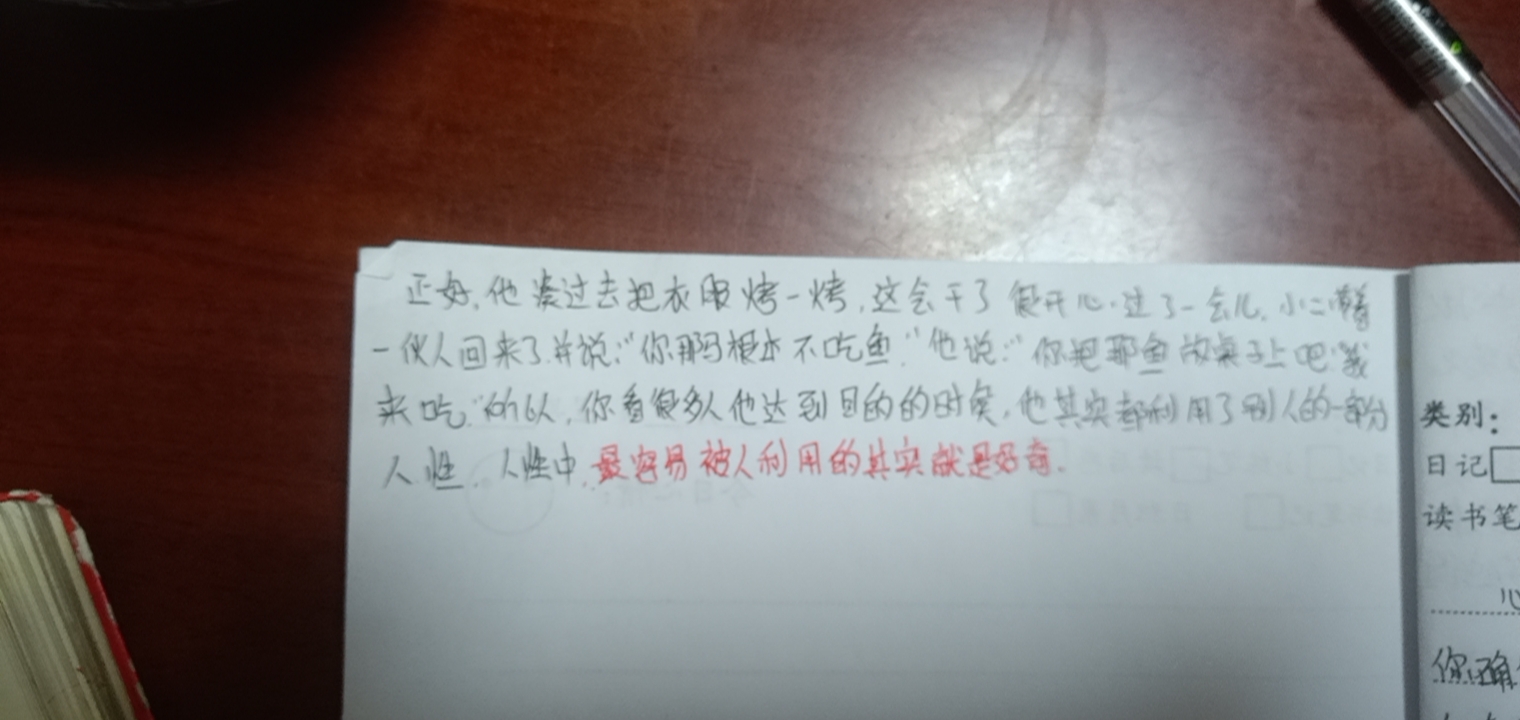 正好，他凑过去把衣服烤一烤，这会干了很开心。过了一会儿，小二带着
一伙人回来了，并说："你那马根本不吃鱼。"他说："你把那鱼放桌子上吧，我
来吃。"所以，你看很多人他达到目的的时候，他其实都利用了别人的一部分
人性，人性中，最容易被人利用的其实就是好奇。
类别：
日记
读书笔
心
你确